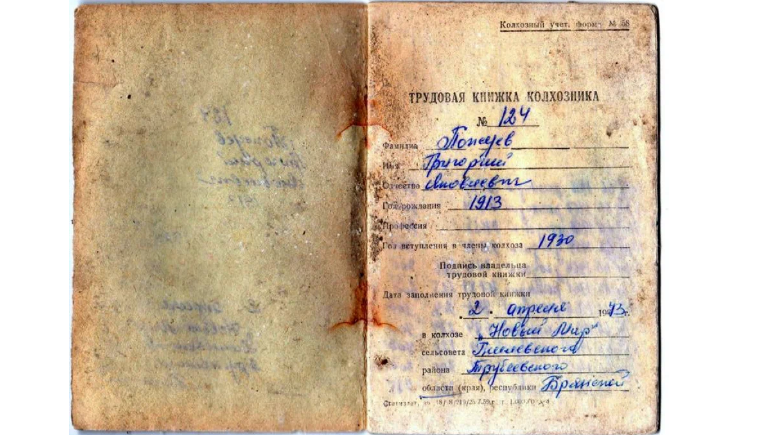 Колхозный учет. форма № 58
ТРУДОВАЯ КНИЖКА КОЛХОЗНИКА
№ 124
Фамилия
Имя Григорий
Отчество Яковлевич
Год рождения 1913
Профессия
Год вступления в члены колхоза 1930
Подпись владельца
трудовой книжки
Дата заполнения трудовой книжки
2 апреля 1973г.
в колхозе „Новый Мир"
сельсовета
района Трубчевского
области (края), республики Брянской